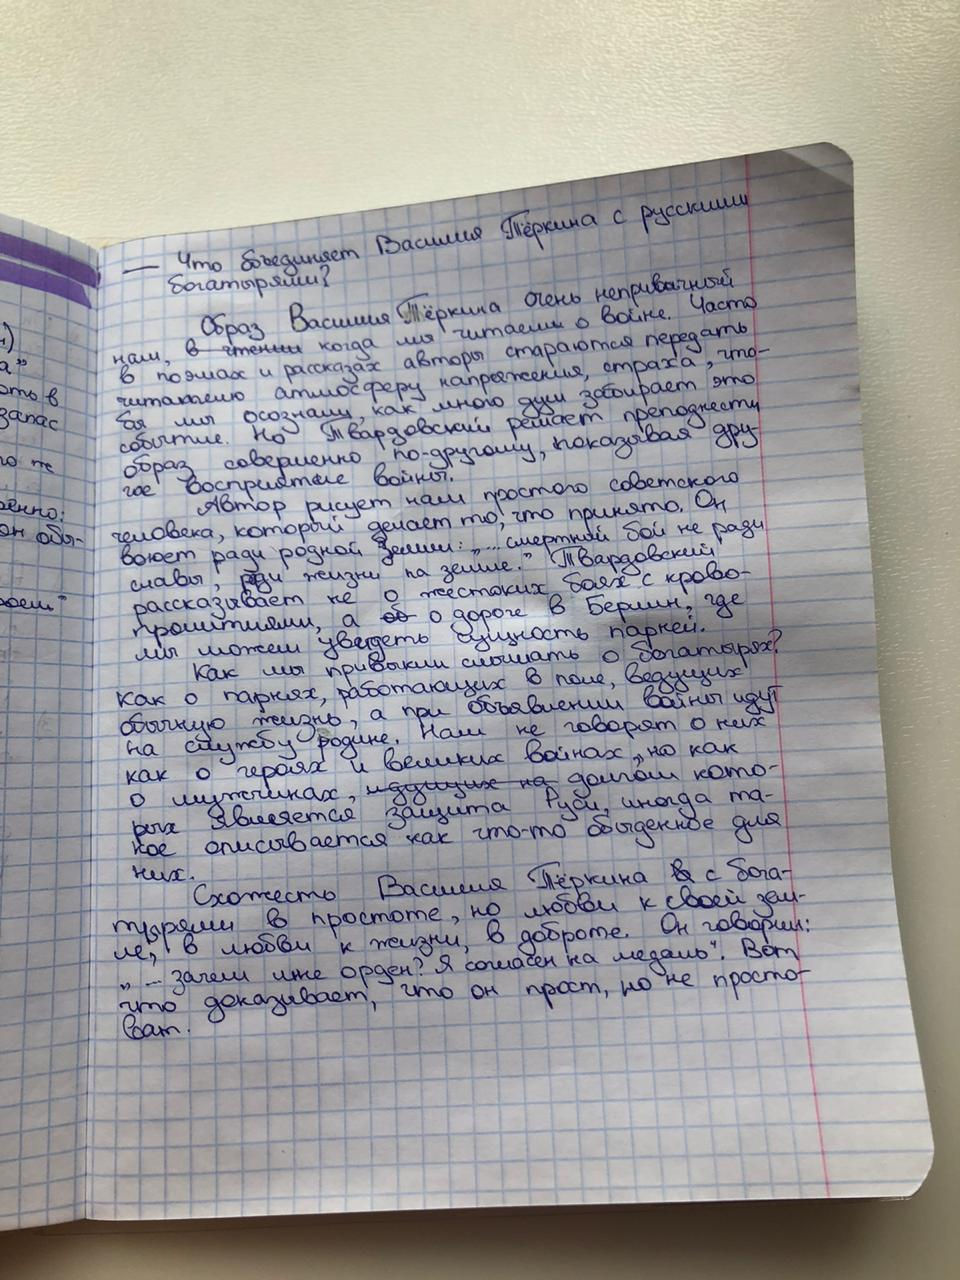 — Что объединяет Василия Тёркина с русскими
богатырями?
Образ Василия Тёркина очень непривычный
нам, в чтении когда мы читаем о войне. Часто
в поэмах и рассказах авторы стараются передать
читателю атмосферу напряжения, страха, что-
бы мы осознали, как много душ забирает это
событие. Но Твардовский решает преподнести
образ совершенно по-другому, показывая дру-
гое восприятие войны.
Автор рисует нам простого советского
человека, который делает то, что принято. Он
воюет ради родной земли: „...смертный бой не ради
славы, ради жизни на земле." Твардовский
рассказывает не о жестоких боях с крово-
пролитиями, а об о дороге в Берлин, где
мы можем увидеть сущность парней.
Как мы привыкли слышать о богатырях?
Как о парнях, работающих в поле, ведущих
обычную жизнь, а при объявлении войны идут
на службу родине. Нам не говорят о них
как о героях и великих войнах, но как
о мужчинах, идущих на долгом кото-
рых является защита Руси, иногда та-
кое описывается как что-то обыденное для
них.
Схожесть Василия Тёркина в с бога-
тырями в простоте, но любви к своей зем-
ле, в любви к жизни, в доброте. Он говорил:
„ - зачем мне орден? Я согласен на медаль". Вот
что доказывает, что он прост, но не просто-
ват.
н)
а"
оть в
запас
го не
венно:
он обы-
роем"